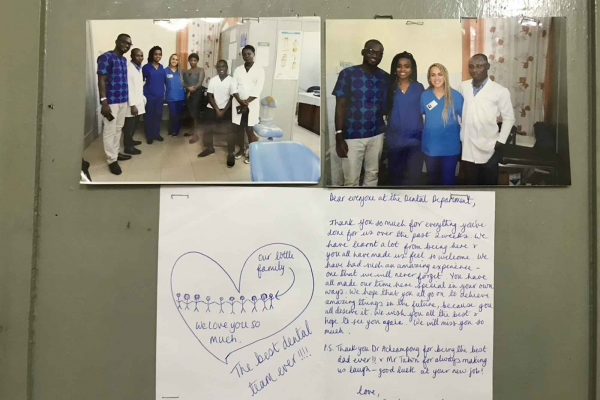 Our little
family
We love you so
much.
The best dental
team ever!!!!
Dear everyone at the Dental Department,
Thank you so much for everything you've
done for us over the past 2 weeks. We
have learnt a lot from being here &
you all have made us feel so welcome. We
have had such an amazing experience -
one that we will never forget. You have
all made our time here special in your own
ways. We hope that you all go on to achieve
amazing things in the future, because you
all deserve it. We wish you all the best &
hope to see you again. We will miss you so
much.
P.S. Thank you Dr Acheampong for being the best
dad ever!! & Mr Tabon for always making
us laugh - good luck at your new job!
Love,